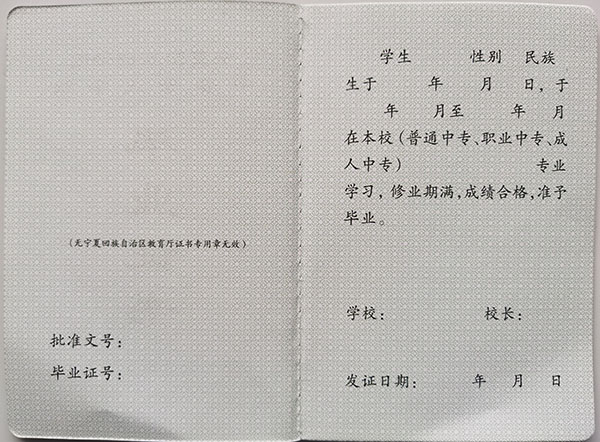 (无宁夏回族自治区教育厅证书专用章无效)
批准文号：
毕业证号：
学生 性别 民族
生于 年 月 日，于
年 月至 年 月
在本校(普通中专、职业中专、成
人中专) 专业
学习，修业期满，成绩合格，准予
毕业。
学校： 校长：
发证日期： 年 月 日